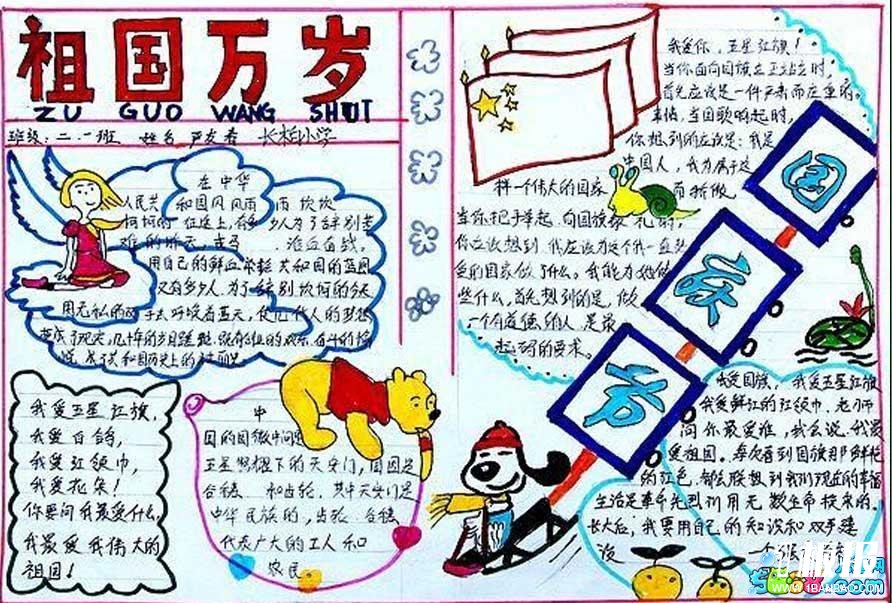 祖国万岁
ZU GUO WANG SHUT
班级：二.一班 姓名 严友春 长柏小学
在中华
人民共和国风风雨雨 坎坎
坷坷的征途上,有多少人为了告别苦
难的昨天,
用自己的鲜血
共和国的蓝图
又有多少人,为了告别坎坷的今天
用无私的双手去
蓝天,使几代人的梦想
变成了现实,几十年的岁月
我爱五星红旗,
我爱白鸽,
我爱红领巾,
我爱花朵!
你要问我最爱什么,
我最爱我伟大的
祖国!
中
国的国徽中间是
五星照耀下的天安门,周围是
谷穗 和齿轮,其中天安门是
中华民族的,齿轮、谷穗
代表广大的工人和
农民
我爱你,五星红旗!
当你面向国旗立正站立时,
首先应该是一件严肃而庄重的
事情,当国歌响起时,
你想到的应该是:我是
中国人,我为属于这
样一个伟大的国家
而骄傲
当你把手举起,向国旗敬 礼时,
你应该想到,我应该为这个我一直热
爱的国家做了什么。我能为她做
些什么,首先想到的是,做
一个有道德的人是最
起码的要求。
国庆节
我爱国旗,我爱五星红旗
我爱鲜红的红领巾,老师
问你最爱谁,我会说:我最
爱祖国。每次看到国旗那鲜艳
的红色,都会联想到我们现在的幸福
生活是革命先烈们用无数生命换来的。
长大后,我要用自己的知识和双手建
设
板报
WWW.1BANBAO.COM